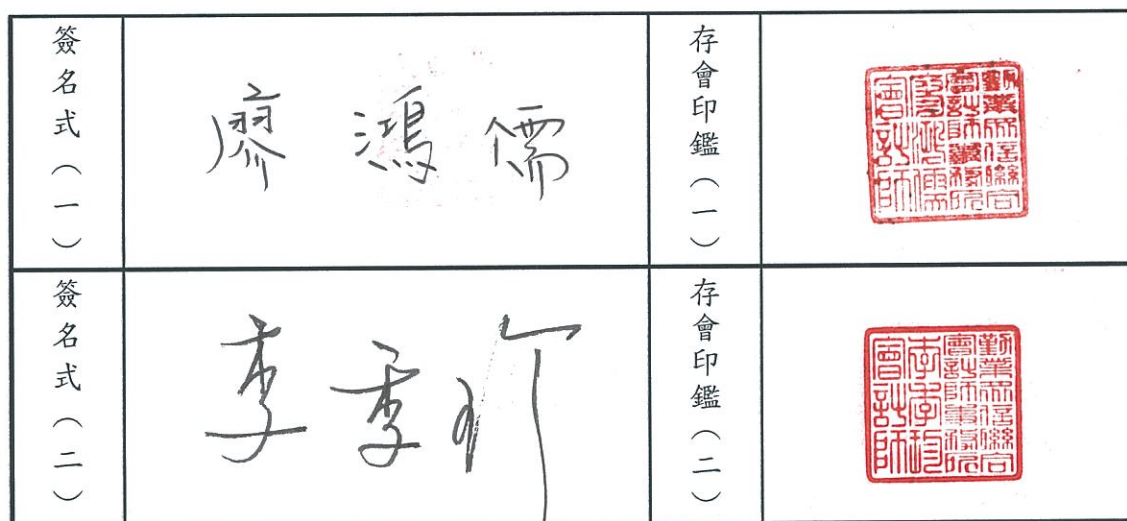 簽名式（一）
廖鴻儒
存會印鑑（一）
勤業眾信聯合
會計師事務所
廖鴻儒
會計師
簽名式（二）
李季
存會印鑑（二）
勤業眾信聯合
會計師事務所
李季
會計師